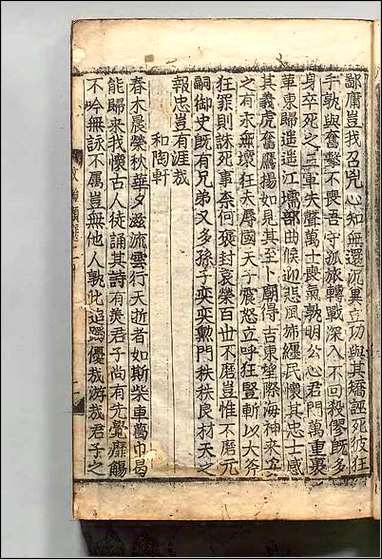 鄙庸豈我召兇心知無還沉冥立功與其矯誣死彼往
手孰與奮擊不畏吾守孤旅轉戰深入不回殺傷旣多
身卒死之三軍失聲萬士喪氣孰明公心君門萬重裹
革東歸遥遥江壖部曲候迎悲風旆纒民懷其忠士感
其義虎奮鷹揚如見其至卜廟得吉東望際海神來五
之有求無壞狂夫辱國天子震怒立呼狂豎斬以大斧
狂罪則誅死事奈何褒封哀榮百世不磨豈惟不磨元
嗣御史旣有兄弟又多孫子奕奕勲門秩秩良材天之
報忠豈有涯哉
和陶軒
春木晨榮秋華夕滋流雲行天逝者如斯柴車葛巾曷
能歸來我懷古人徒誦其詩有美君子尚有先覺靡觴
不吟無詠不厲豈無他人孰此追躅優哉游哉君子之